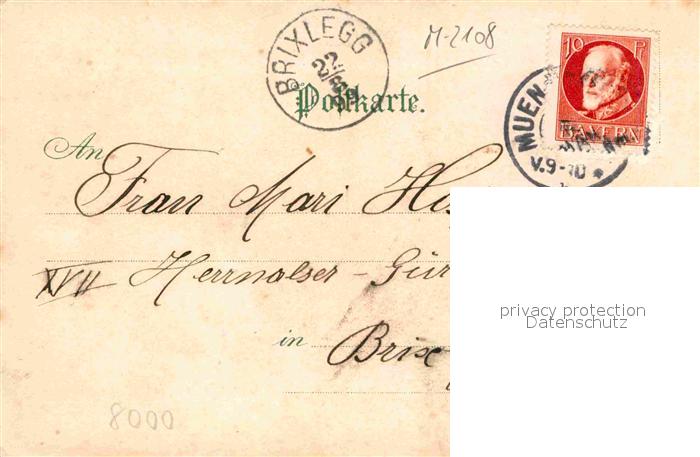 BRIXLEGG
22
M-2108
10 Pf
BAYERN
MUEN
V.9-10 *
Postkarte.
An
Frau Mari
XVII Hernalser - Gür
in Brix
privacy protection
Datenschutz
8000